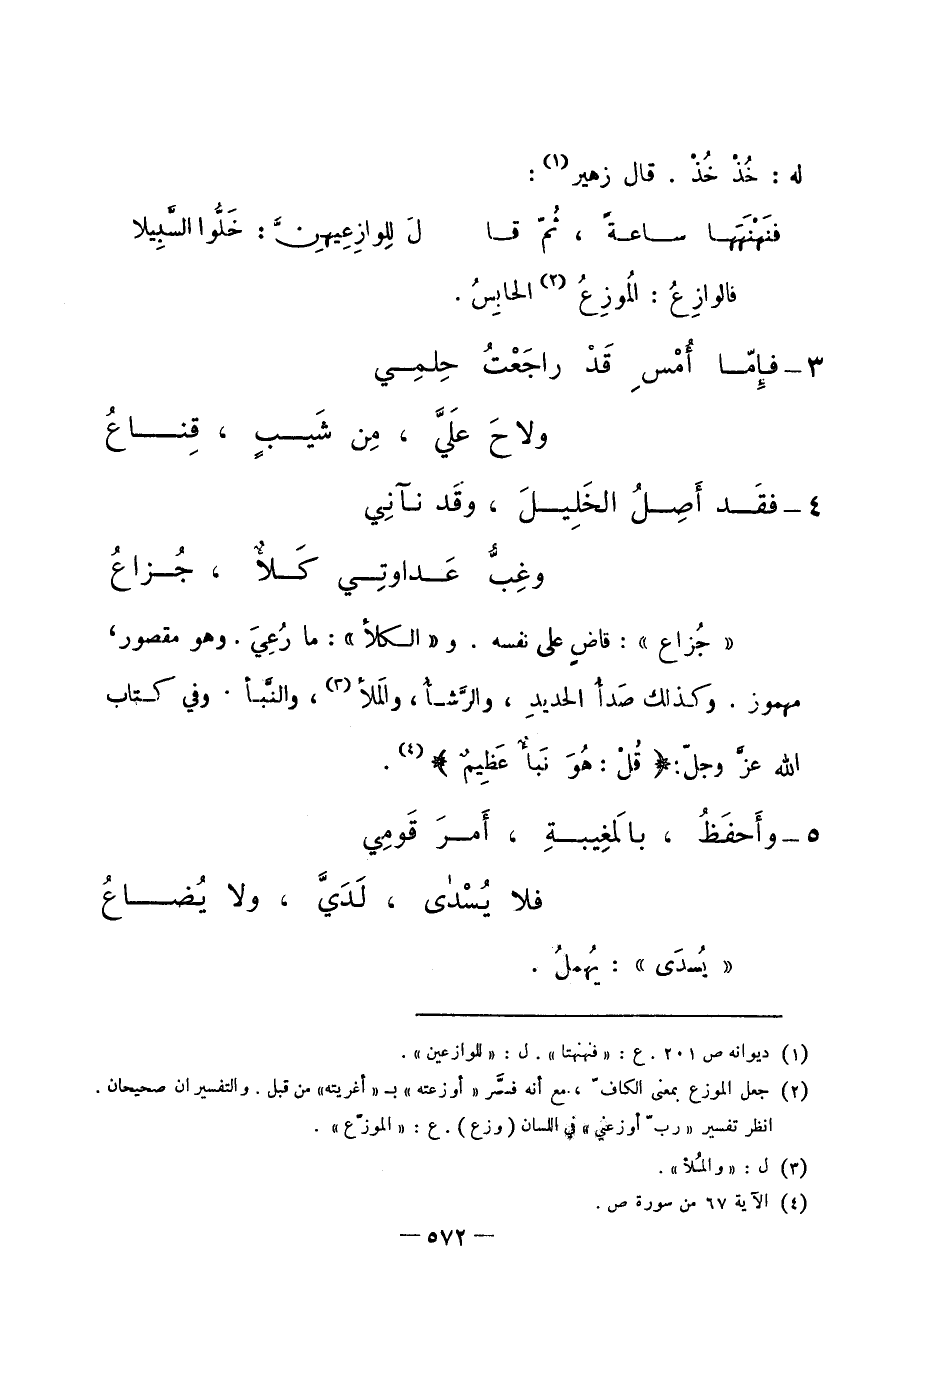 له : خُذْ خُذْ . قال زهير (١) :
فَنَهْنَهَهَا ساعةً ، ثُمّ قا لَ لِلوازِعِيهِنَّ : خَلُّوا السَّبِيلا
فالوازِعُ : المُوزِعُ (٢) الحابِسُ .
٣ – فإِمّا أُمْسِ قَدْ راجَعْتُ حِلمِي
ولاحَ علَيَّ ، مِن شَيبٍ ، قِناعُ
٤ – فقَد أَصِلُ الخَلِيلَ ، وقَد نآنِي
وغِبُّ عَداوتِي كَلأٌ ، جُزاعُ
« جُزاع » : قاضٍ على نفسه . و « الكلأ » : ما رُعِيَ . وهو مقصور ،
مهموز . وكذلك صَدأُ الحديدِ ، والرَّشأُ ، والمَلأ (٣) ، والنَّبأ . وفي كتاب
الله عزَّ وجلّ : ﴿ قُلْ : هُوَ نَبأٌ عَظِيمٌ ﴾ (٤) .
٥ – وأَحفَظُ ، بالمَغِيبةِ ، أَمرَ قَومِي
فلا يُسْدٰى ، لَدَيَّ ، ولا يُضاعُ
« يُسدَى » : يُهملُ .
(١) ديوانه ص ٢٠١ . ع : « فنهنهتا » . ل : « للوازعين » .
(٢) جعل الموزع بمعنى الكافّ ، مع أنه فسَّر « أوزعته » بـ « أغريته » من قبل . والتفسيران صحيحان .
انظر تفسير « ربّ أوزعني » في اللسان ( وزع ) . ع : « الموزّع » .
(٣) ل : « والمُلأ » .
(٤) الآية ٦٧ من سورة ص .
— ٥٧٢ —